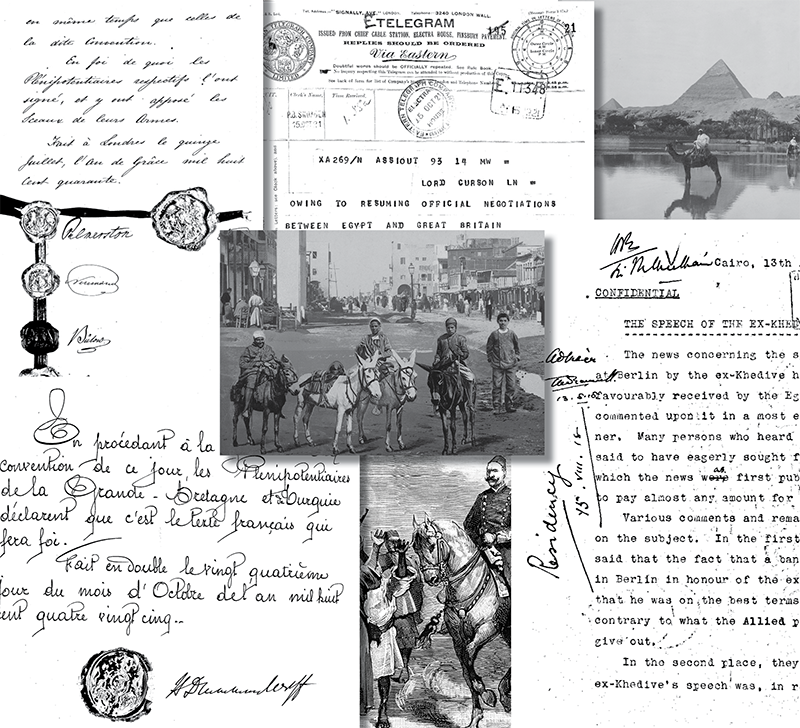 en même temps que celles de
la dite Convention.
En foi de quoi les
Plénipotentiaires respectifs l'ont
signé, et y ont apposé les
Sceaux de leurs Armes.
Fait à Londres le quinze
Juillet, l'An de Grâce mil huit
cent quarante.
Palmerston
Neumann
Bülow
"SIGNALLY, AVE, LONDON"
3240 LONDON WALL.
TELEGRAM
ISSUED FROM CHIEF CABLE STATION, ELECTRA HOUSE, FINSBURY PAVEMENT.
REPLIES SHOULD BE ORDERED
Via Eastern
Doubtful words should be OFFICIALLY repeated. See Rule Book.
No inquiry respecting this Telegram can be attended to without production of this
Clerk's Name.
Time Received.
15 OCT 21
E.11348
XA269/N ASSIOUT 93 14 MW =
LORD CURSON LN =
OWING TO RESUMING OFFICIAL NEGOTIATIONS
BETWEEN EGYPT AND GREAT BRITAIN
Cairo, 13th
CONFIDENTIAL
THE SPEECH OF THE EX-KHED
The news concerning the s
at Berlin by the ex-Khedive h
favourably received by the Eg
commented upon it in a most e
ner. Many persons who heard
said to have eagerly sought f
which the news was first pub
to pay almost any amount for
Various comments and rema
on the subject. In the first
said that the fact that a ban
in Berlin in honour of the ex
that he was on the best terms
contrary to what the Allied p
give out.
In the second place, they
ex-Khedive's speech was, in r
Residency
15. VIII. 18
En procédant à la
Convention de ce jour, les Plénipotentiaires
de la Grande-Bretagne et de Turquie
déclarent que c'est le texte français qui
fera foi.
Fait en double le vingt quatrième
jour du mois d'Octobre de l'an mil huit
cent quatre vingt cinq
H Drummond Wolff